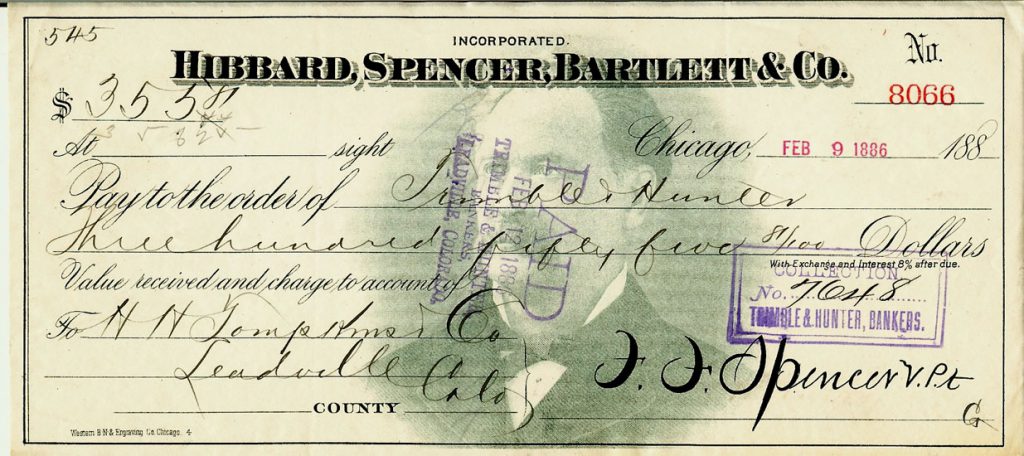 545
INCORPORATED.
HIBBARD, SPENCER, BARTLETT & CO.
No.
8066
$ 355 81
At sight
Chicago, FEB 9 1886 188
Pay to the order of Trimble & Hunter
Three hundred fifty five 81/100 Dollars
With Exchange and Interest 8% after due.
Value received and charge to account of
To H H Tompkins & Co
Leadville Colo
COUNTY
F. F. Spencer V. Pt
G
Western B.N & Engraving Co. Chicago. 4
PAID
FEB 12 1886
TRIMBLE & HUNTER
BANKERS
LEADVILLE, COLORADO.
COLLECTION
No. 7648
TRIMBLE & HUNTER, BANKERS.